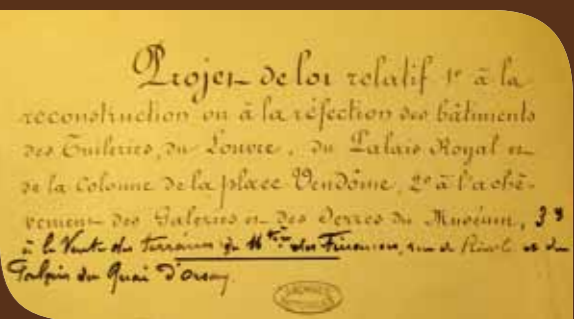 Projet de loi relatif 1º à la
reconstruction ou à la réfection des bâtiments
des Tuileries, du Louvre, du Palais Royal et
de la Colonne de la place Vendôme, 2º à l'achè-
vement des Galeries et des Serres du Muséum, 3º
à la Vente des terrains du Mtère des Finances, rue de Rivoli et du
Palais du Quai d'Orsay.
ARCHIVES
NATIONALES